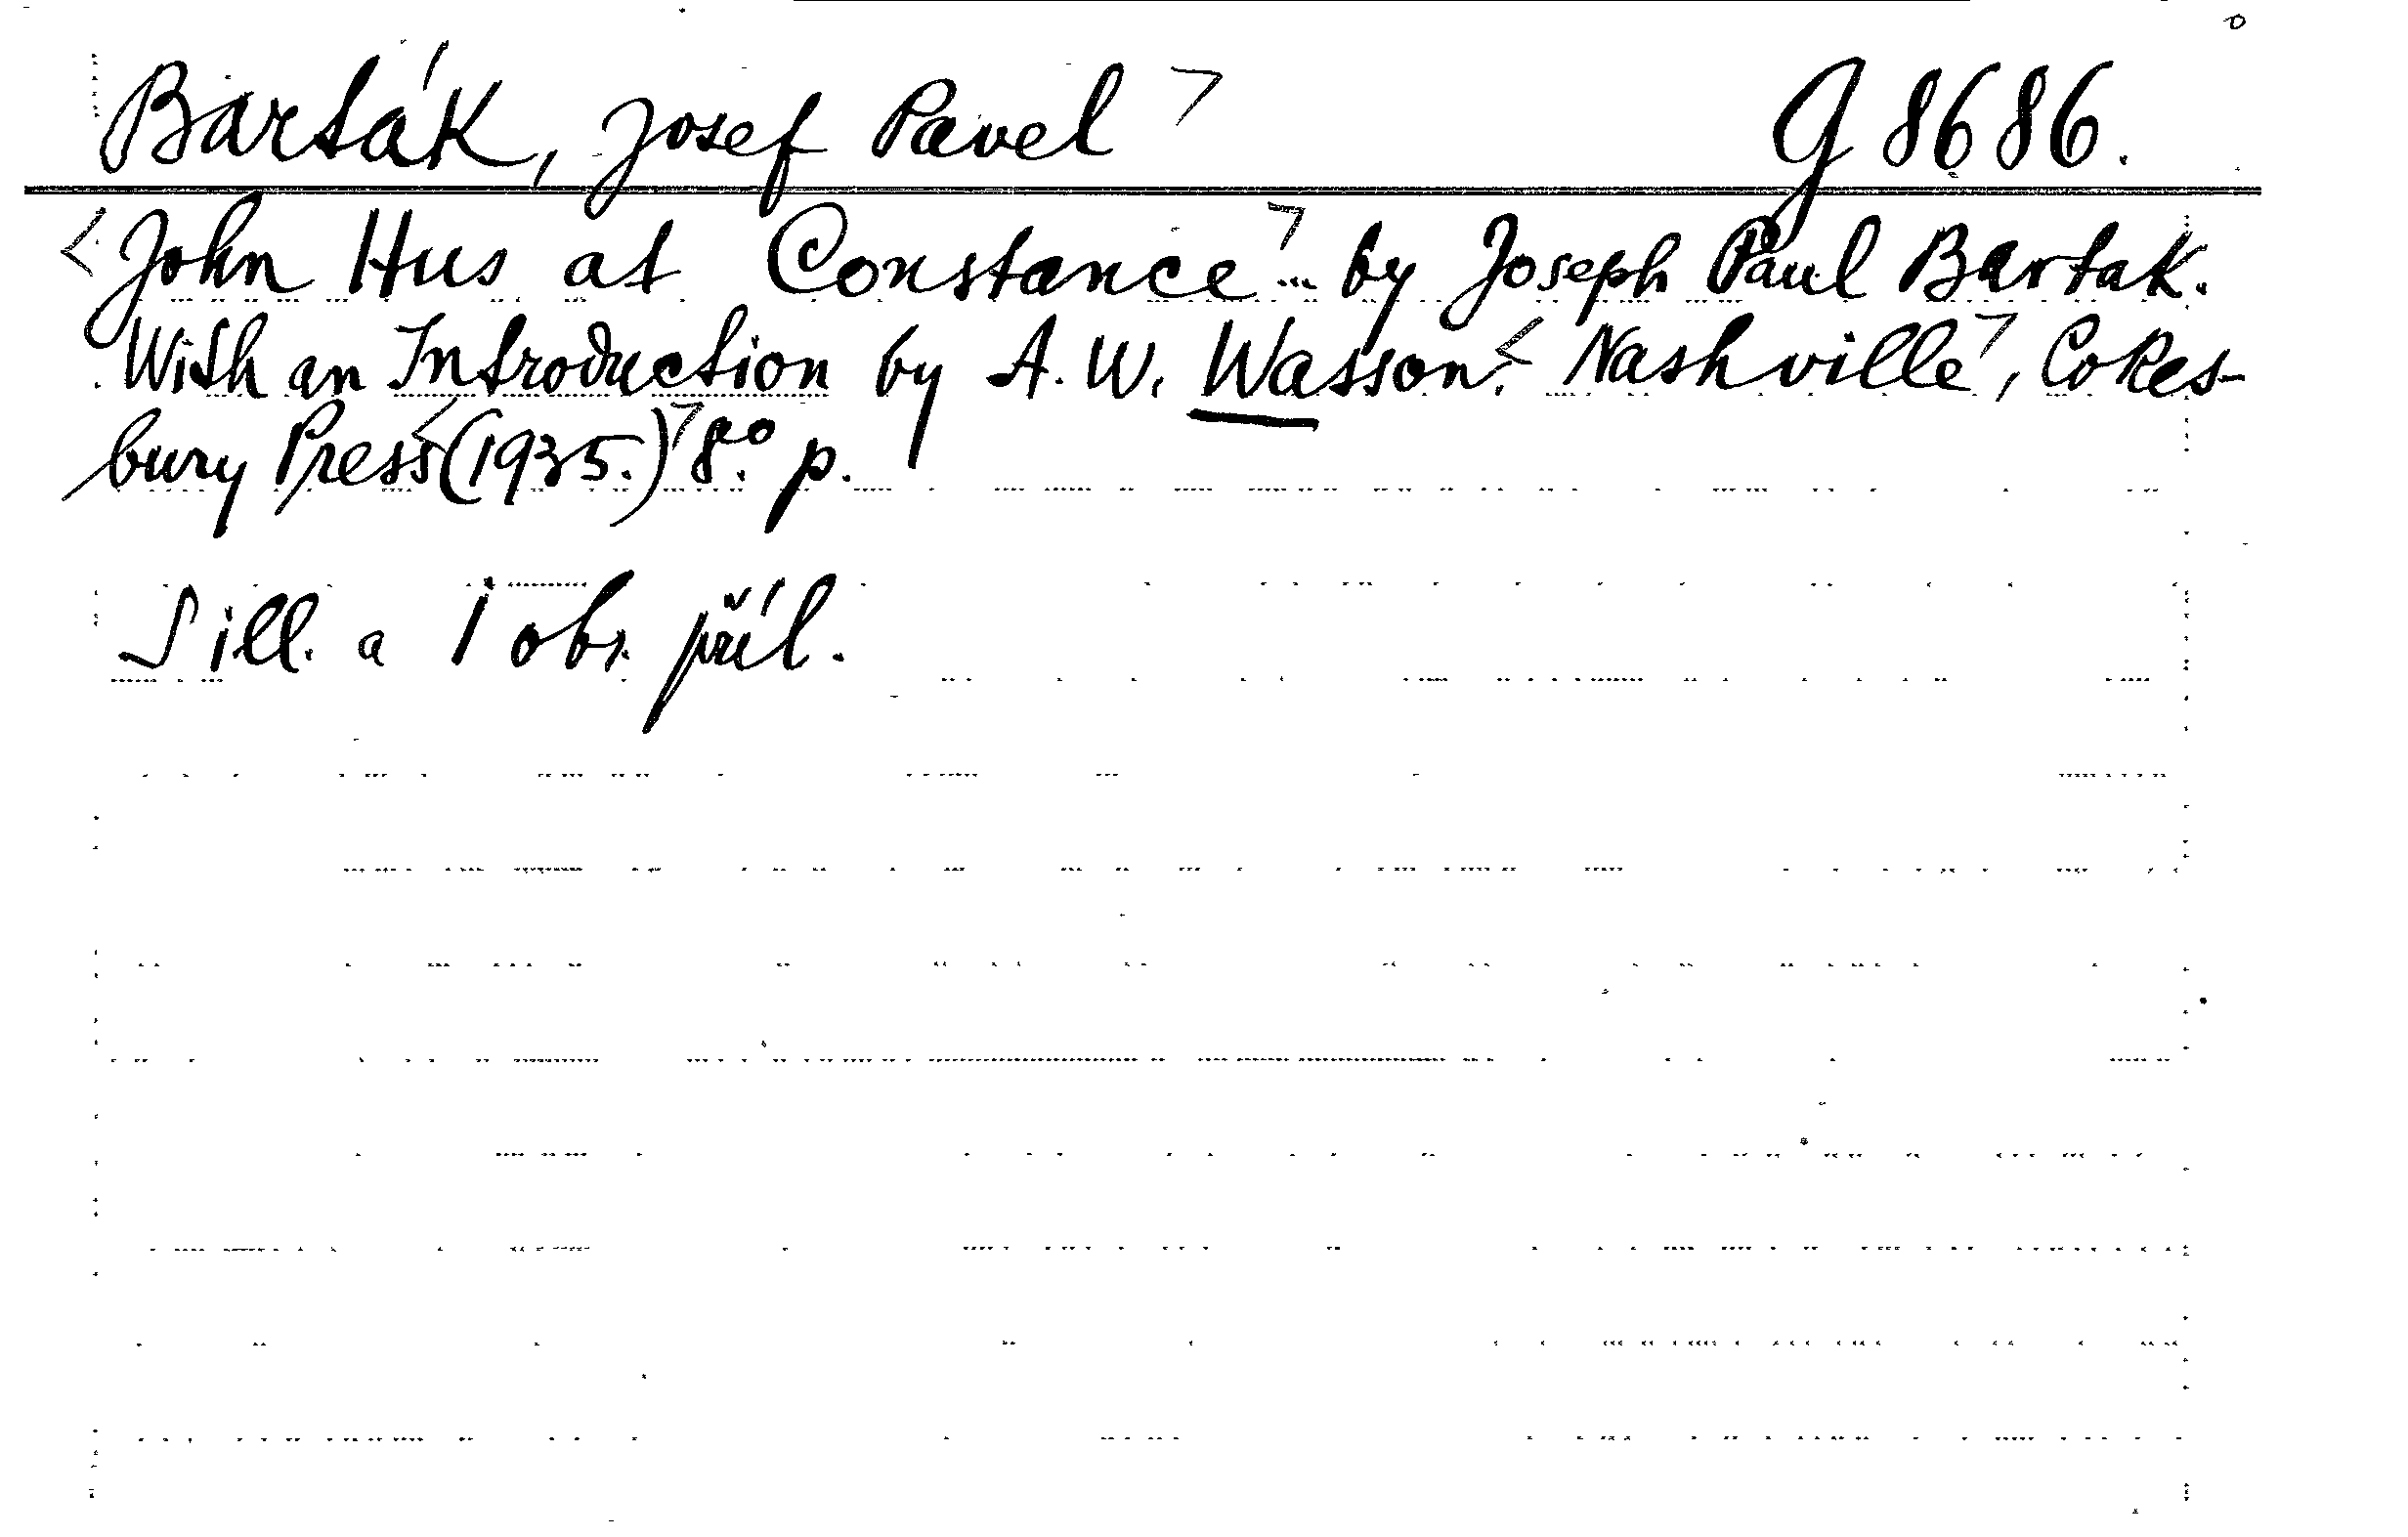 Barták, Josef Pavel G 8686.
John Hus at Constance... by Joseph Paul Bartak.
With an Introduction by A. W. Wasson. Nashville, Cokes-
bury Press (1935.) 8.° p.
S ill. a 1 obr. příl.